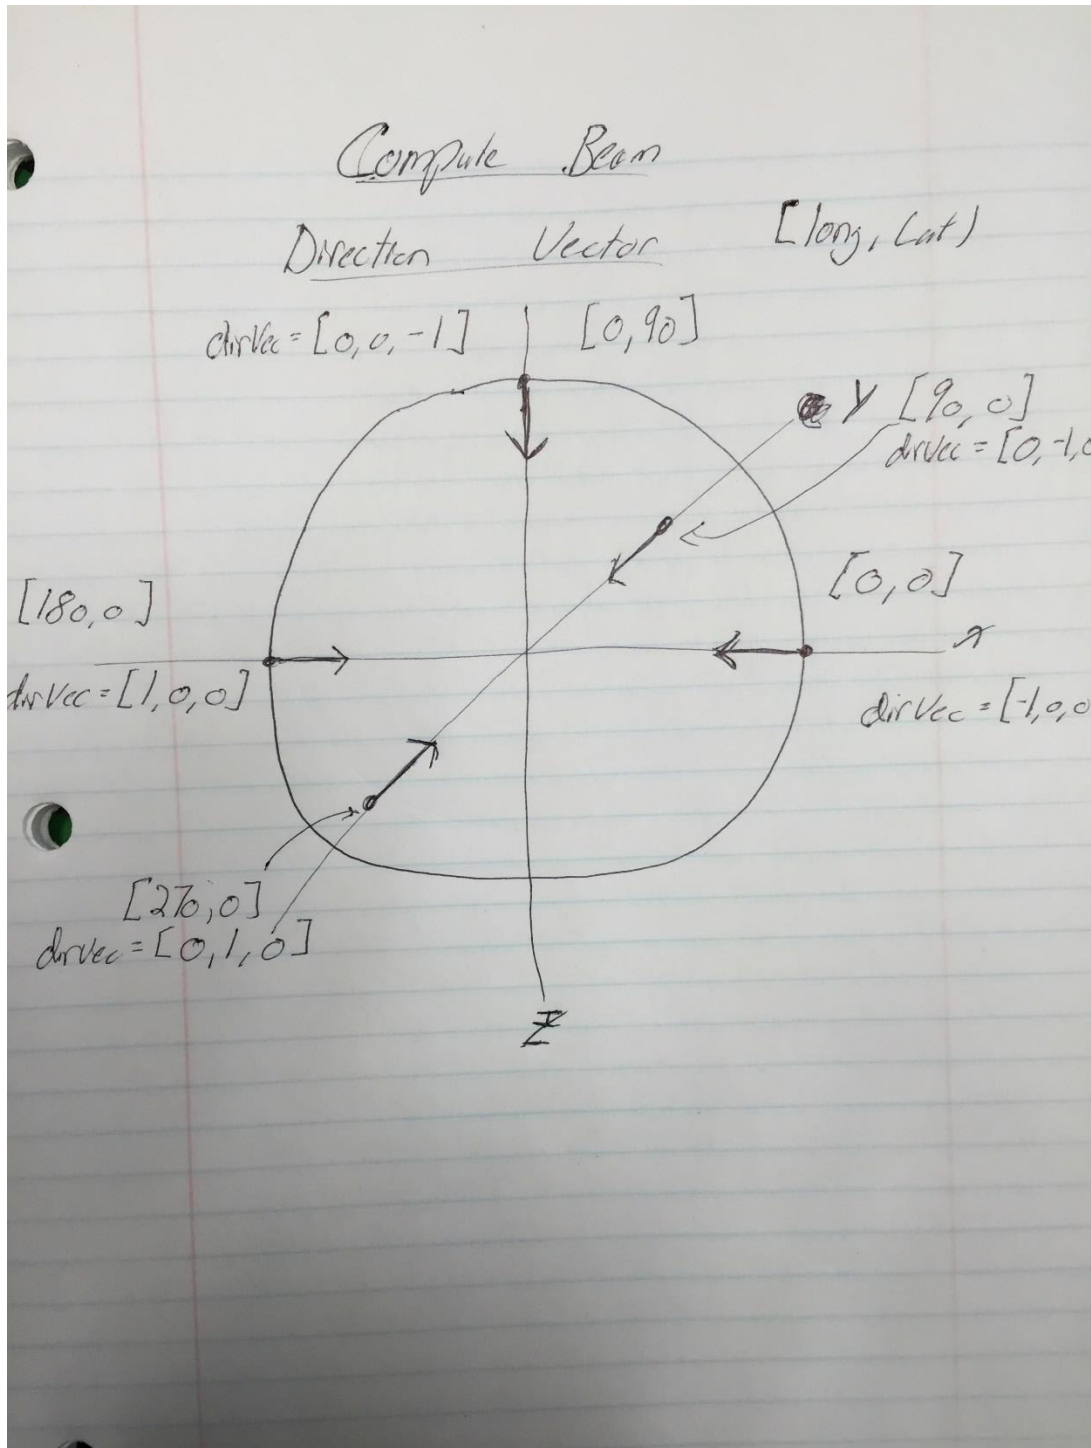 Compute Beam
Direction Vector [long, Lat)
dirVec = [0, 0, -1] [0, 90]
Y [90, 0]
dirVec = [0, -1, 0
[0, 0]
[180, 0]
x
dirVec = [1, 0, 0]
dirVec = [-1, 0, 0
[270, 0]
dirVec = [0, 1, 0]
Z